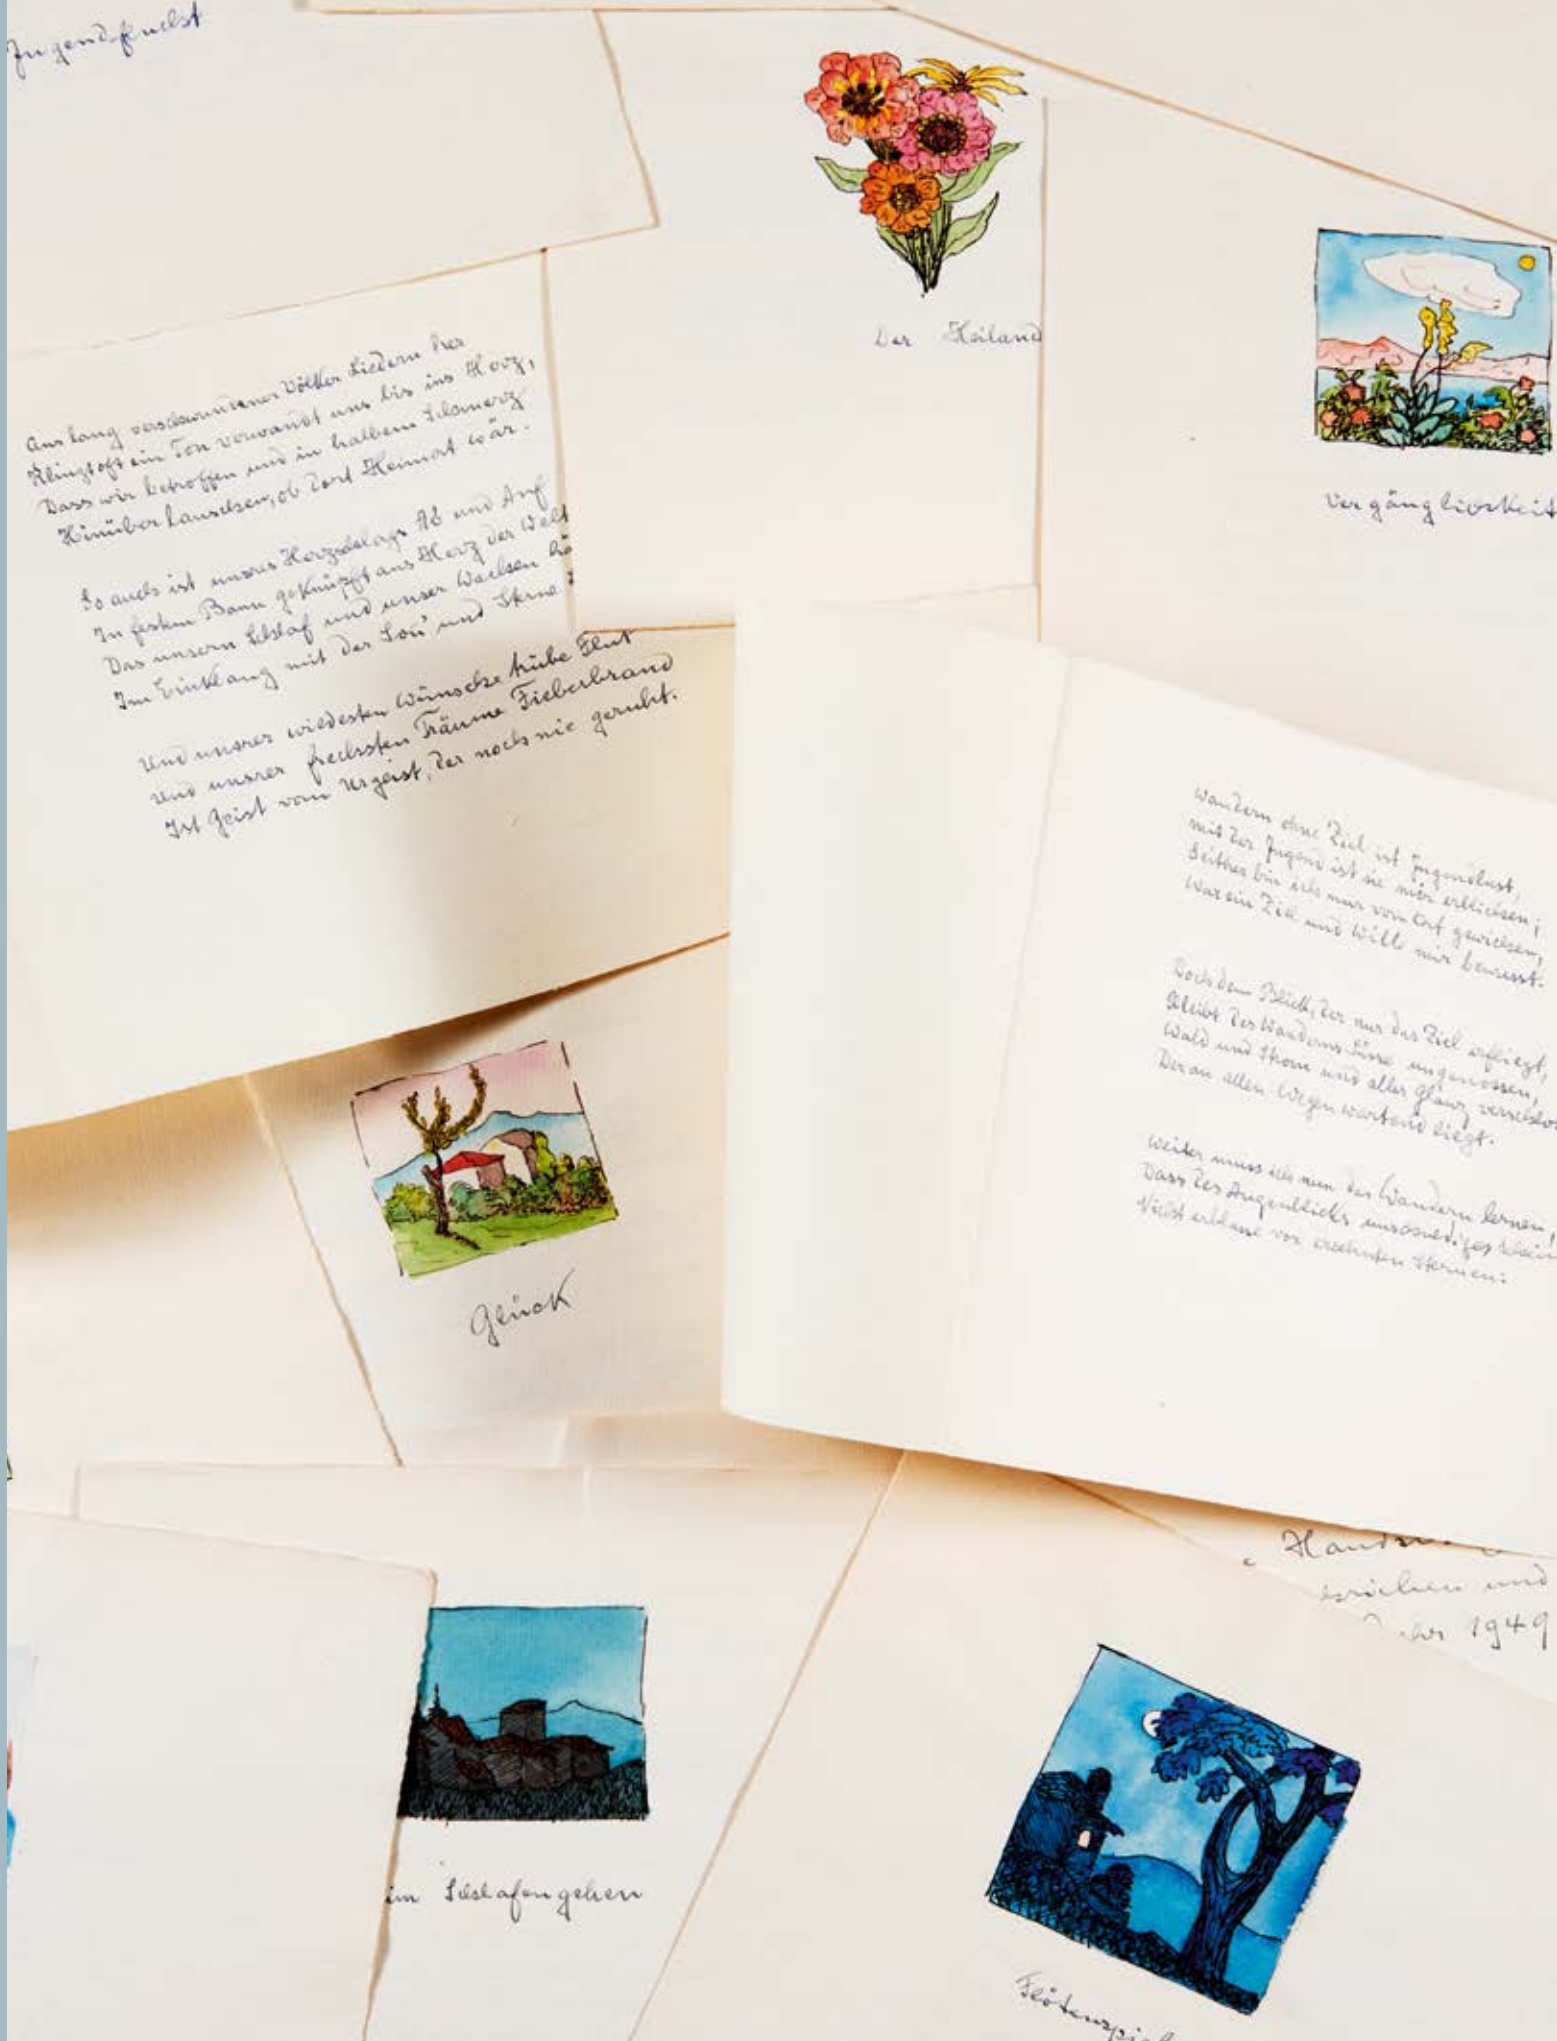 Jugendflucht
Der Heiland
Vergänglichkeit
Aus lang verschwundener Völker Liedern her
Klingt oft ein Ton verwandt uns bis ins Herz,
Dass wir betroffen und in halbem Schmerz
Hinüber lauschen, ob dort Heimat wär.
So auch ist unsres Herzschlags Ab und Auf
In festem Bann geknüpft ans Herz der Welt
Das unsern Schlaf und unser Wachen hä
Im Einklang mit der Sonn' und Sterne
Und unsrer wildesten Wünsche trübe Flut
Und unsrer frechsten Träume Fieberbrand
Ist Geist vom Urgeist, der noch nie geruht.
Wandern ohne Ziel ist Jugendlust,
Mit der Jugend ist sie mir erblichen;
Seither bin ich nur vom Ort gewichen,
War ein Ziel und Wille mir bewusst.
Doch dem Blick, der nur das Ziel erfliegt,
Bleibt des Wanderns Süsse ungenossen,
Wald und Strom und aller Glanz verschlos
Der an allen Wegen wartend liegt.
Weiter muss ich nun das Wandern lernen,
Dass des Augenblicks unschuldiger Schein
Nicht erblasse vor ersehnten Sternen:
Glück
und
1949
im Schlafengehen
Flötenspiel